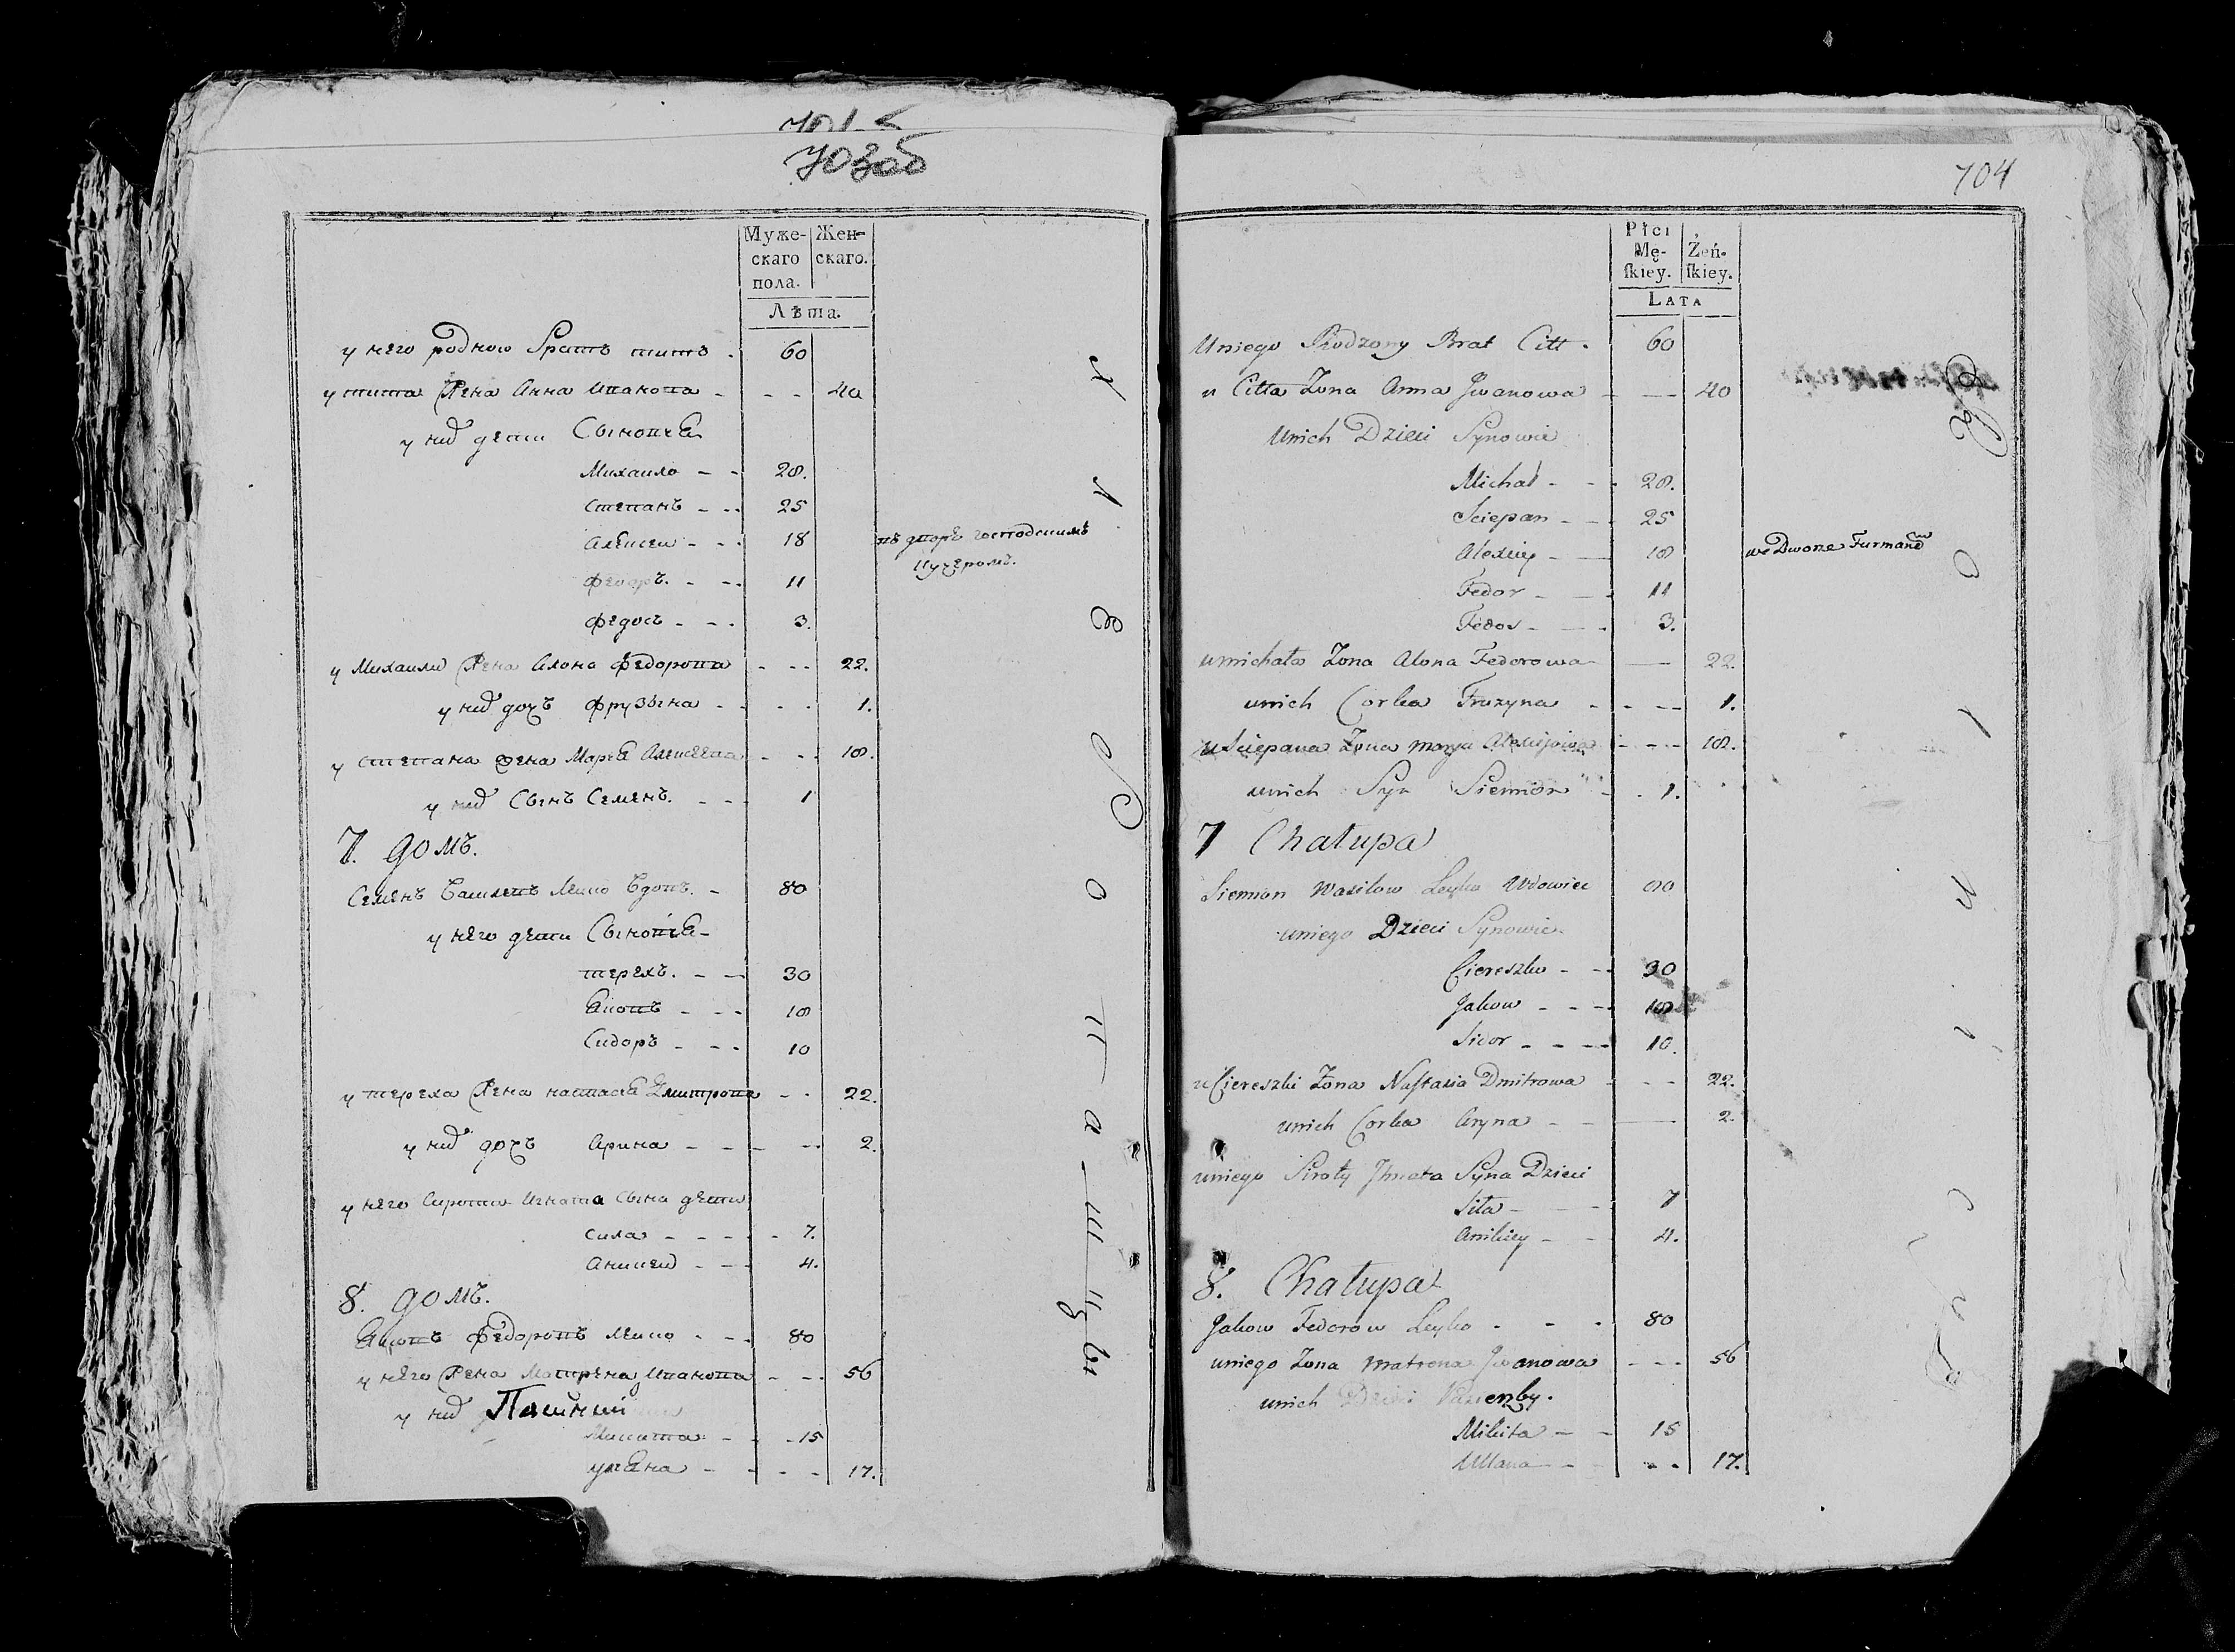 703об
Муже-
скаго
пола.
Жен-
скаго.
Лѣта.
у него родной братъ титъ - 60
у тита жена Анна Иванова - - - 40
у ниӽ дети Сыновьѣ
Михаило - - 28.
Степанъ - - - 25
Алексеи - - - 18 въ дворѣ господскимъ
кучеромъ.
Федоръ. - - - 11
Федосъ - - - 3.
у Михаилы жена Алона Федорова - - - 22.
у ниӽ дочъ Фрузына - - - - 1.
у степана жена Марья Алексеева - - - 18.
у ниӽ Сынъ Семенъ. - - - 1
7. домъ.
Семенъ Василевъ Лейко вдовъ. - 80
у него дети Сыновьѣ -
терехъ. - - 30
Яковъ - - - 18
Сидоръ - - - 10
у тереха жена настася Дмитрова - - 22.
у ниӽ дочъ Арина - - - - - 2.
у него Сироты Игната Сына дети
сила - - - - - 7.
Аникей - - - 4.
8. домъ.
Яковъ Федоровъ Лейко - - - 80
у него жена Матрена Иванова - - - 56
у ниӽ
Микита - - - 15
ульяна - - - - 17.
704
Płci
Mę-
ſkiey.
Żeń-
ſkiey.
LATA
Uniego Rodzony Brat Citt - 60
u Citta Zona Anna Jwanowa - - 40
Unich Dzieci Synowie
Michał - - - 28.
Sciepan - - - 25
Alexiey - - 18 we Dworze Furmanem
Fedor - - - 11
Fedos - - - 3.
u michała Zona Alona Fedorowa - - 22.
unich Corka Fruzyna - - - - 1.
u Sciepana Zona marya Alexiejowa - - - 18.
unich Syn Siemion - - 1.
7 Chałupa
Siemion Wasilow Leyko Wdowiec 80
uniego Dzieci Synowie
Ciereszko - - - 30
Jakow - - - - 18
Sidor - - - - 10.
u Ciereszki Zona Nastazia Dmitrowa - - - 22.
unich Corka Aryna - - - 2.
uniego Siroty Jhnata Syna Dzieci
Siła - - - 7
Anikiey - - 4.
8. Chałupa
Jakow Fedorow Leyko - - - 80
uniego Zona matrona Jwanowa - - - 56
unich
Mikita - - 15
Ullana - - - - 17.